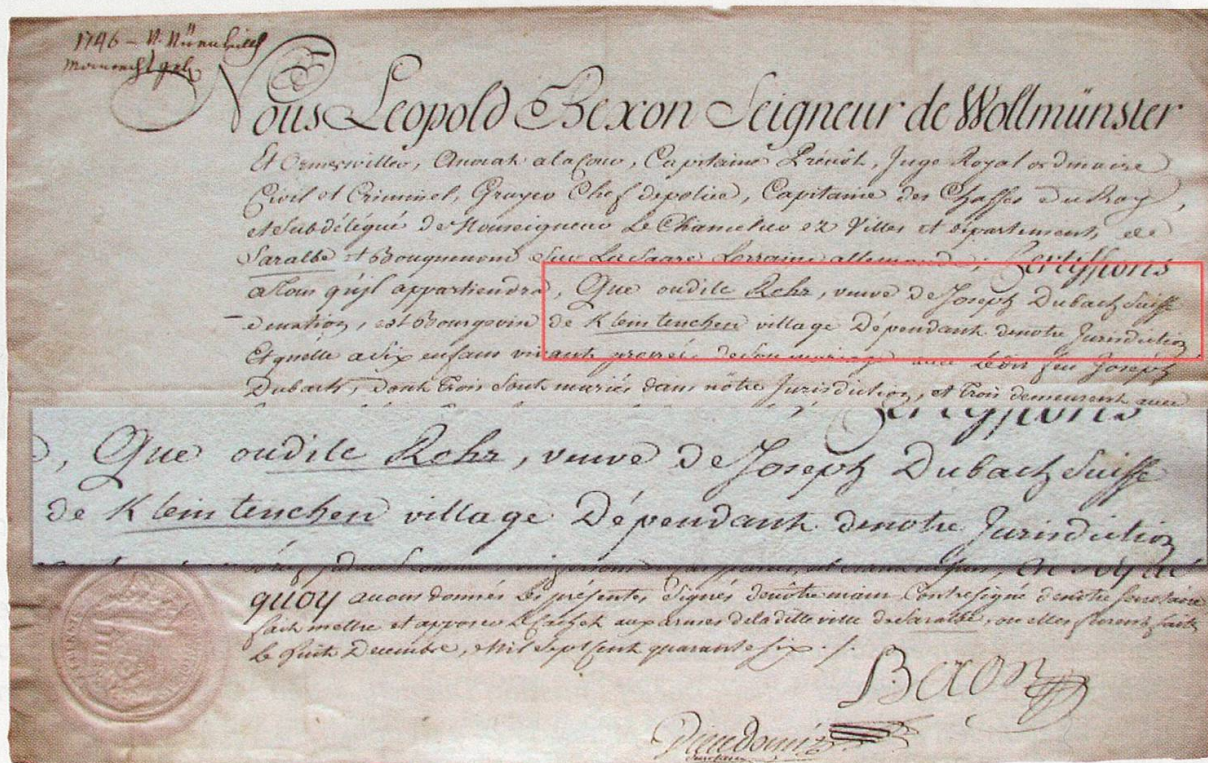 1746 –
Nous Leopold Bexon Seigneur de Wollmünster
Et Ormerswiller, Avocat a la Cour, Capitaine Prévôt, Juge Royal ordinaire
Civil et Criminel, Gruyer Chef de police, Capitaine des Chasses du Roy,
et Subdélégué de Monseigneur Le Chancelier ez Villes et départements de
Saralbe et Bouquenom Sur La Saare Lorraine allemande; Certiffions
a tous qu'jl appartiendra, Que oudile Rehr, veuve de Joseph Dubach Suisse
de nation, est Bourgeoise de Kleintenchen village Dépendant de notre Jurisdiction
Et quelle a Six enfans vivants de Son mariage avec Ledit feu Joseph
Dubach, dont trois Sont mariés dans nôtre Jurisdiction, et trois demeurent avec
Certiffions
, Que oudile Rehr, veuve de Joseph Dubach Suisse
de Kleintenchen village Dépendant de notre Jurisdiction
quoy avons donnés les présentes, Signés de nôtre main Contresigné de notre Secretaire
fait mettre et apposer le Cachet aux armes de la ditte ville de Saralbe, ou elles furent faites
Le huit Decembre, Mil Sept Cent quarante Six ./.
Bexon